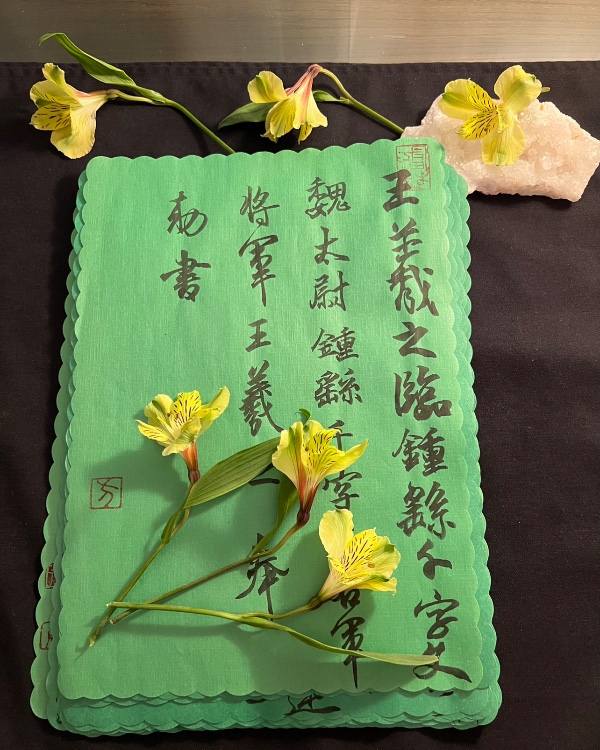 王羲之臨鍾繇千字文
魏太尉鍾繇千字右軍
將軍王羲奉
勅書